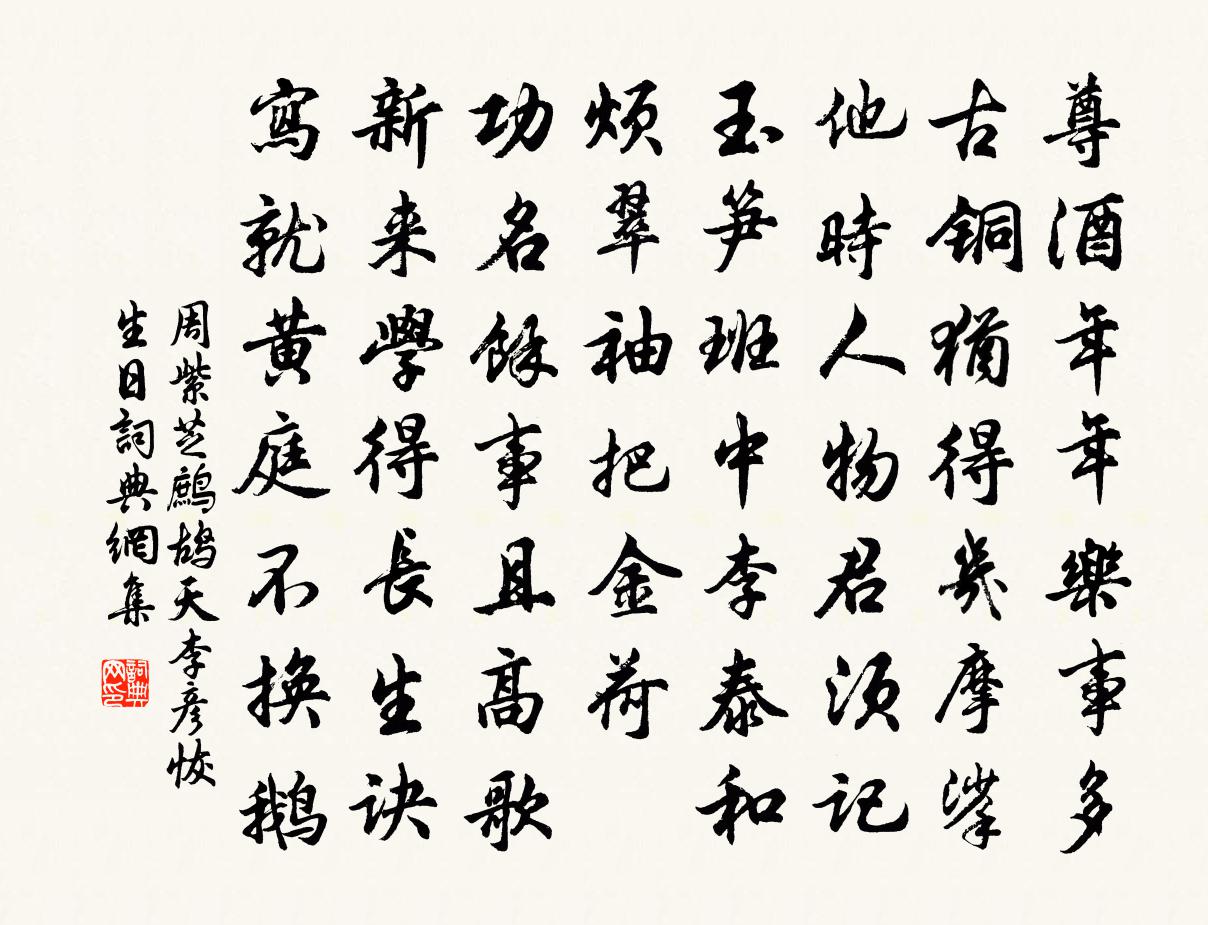 尊酒年年樂事多
古銅猶得幾摩挲
他時人物君須記
玉笋班中李泰和
煩翠袖把金荷
功名餘事且高歌
新来學得長生訣
寫就黄庭不換鵝
周紫芝鷓鴣天李彦恢
生日詞典網集
詞典
网印